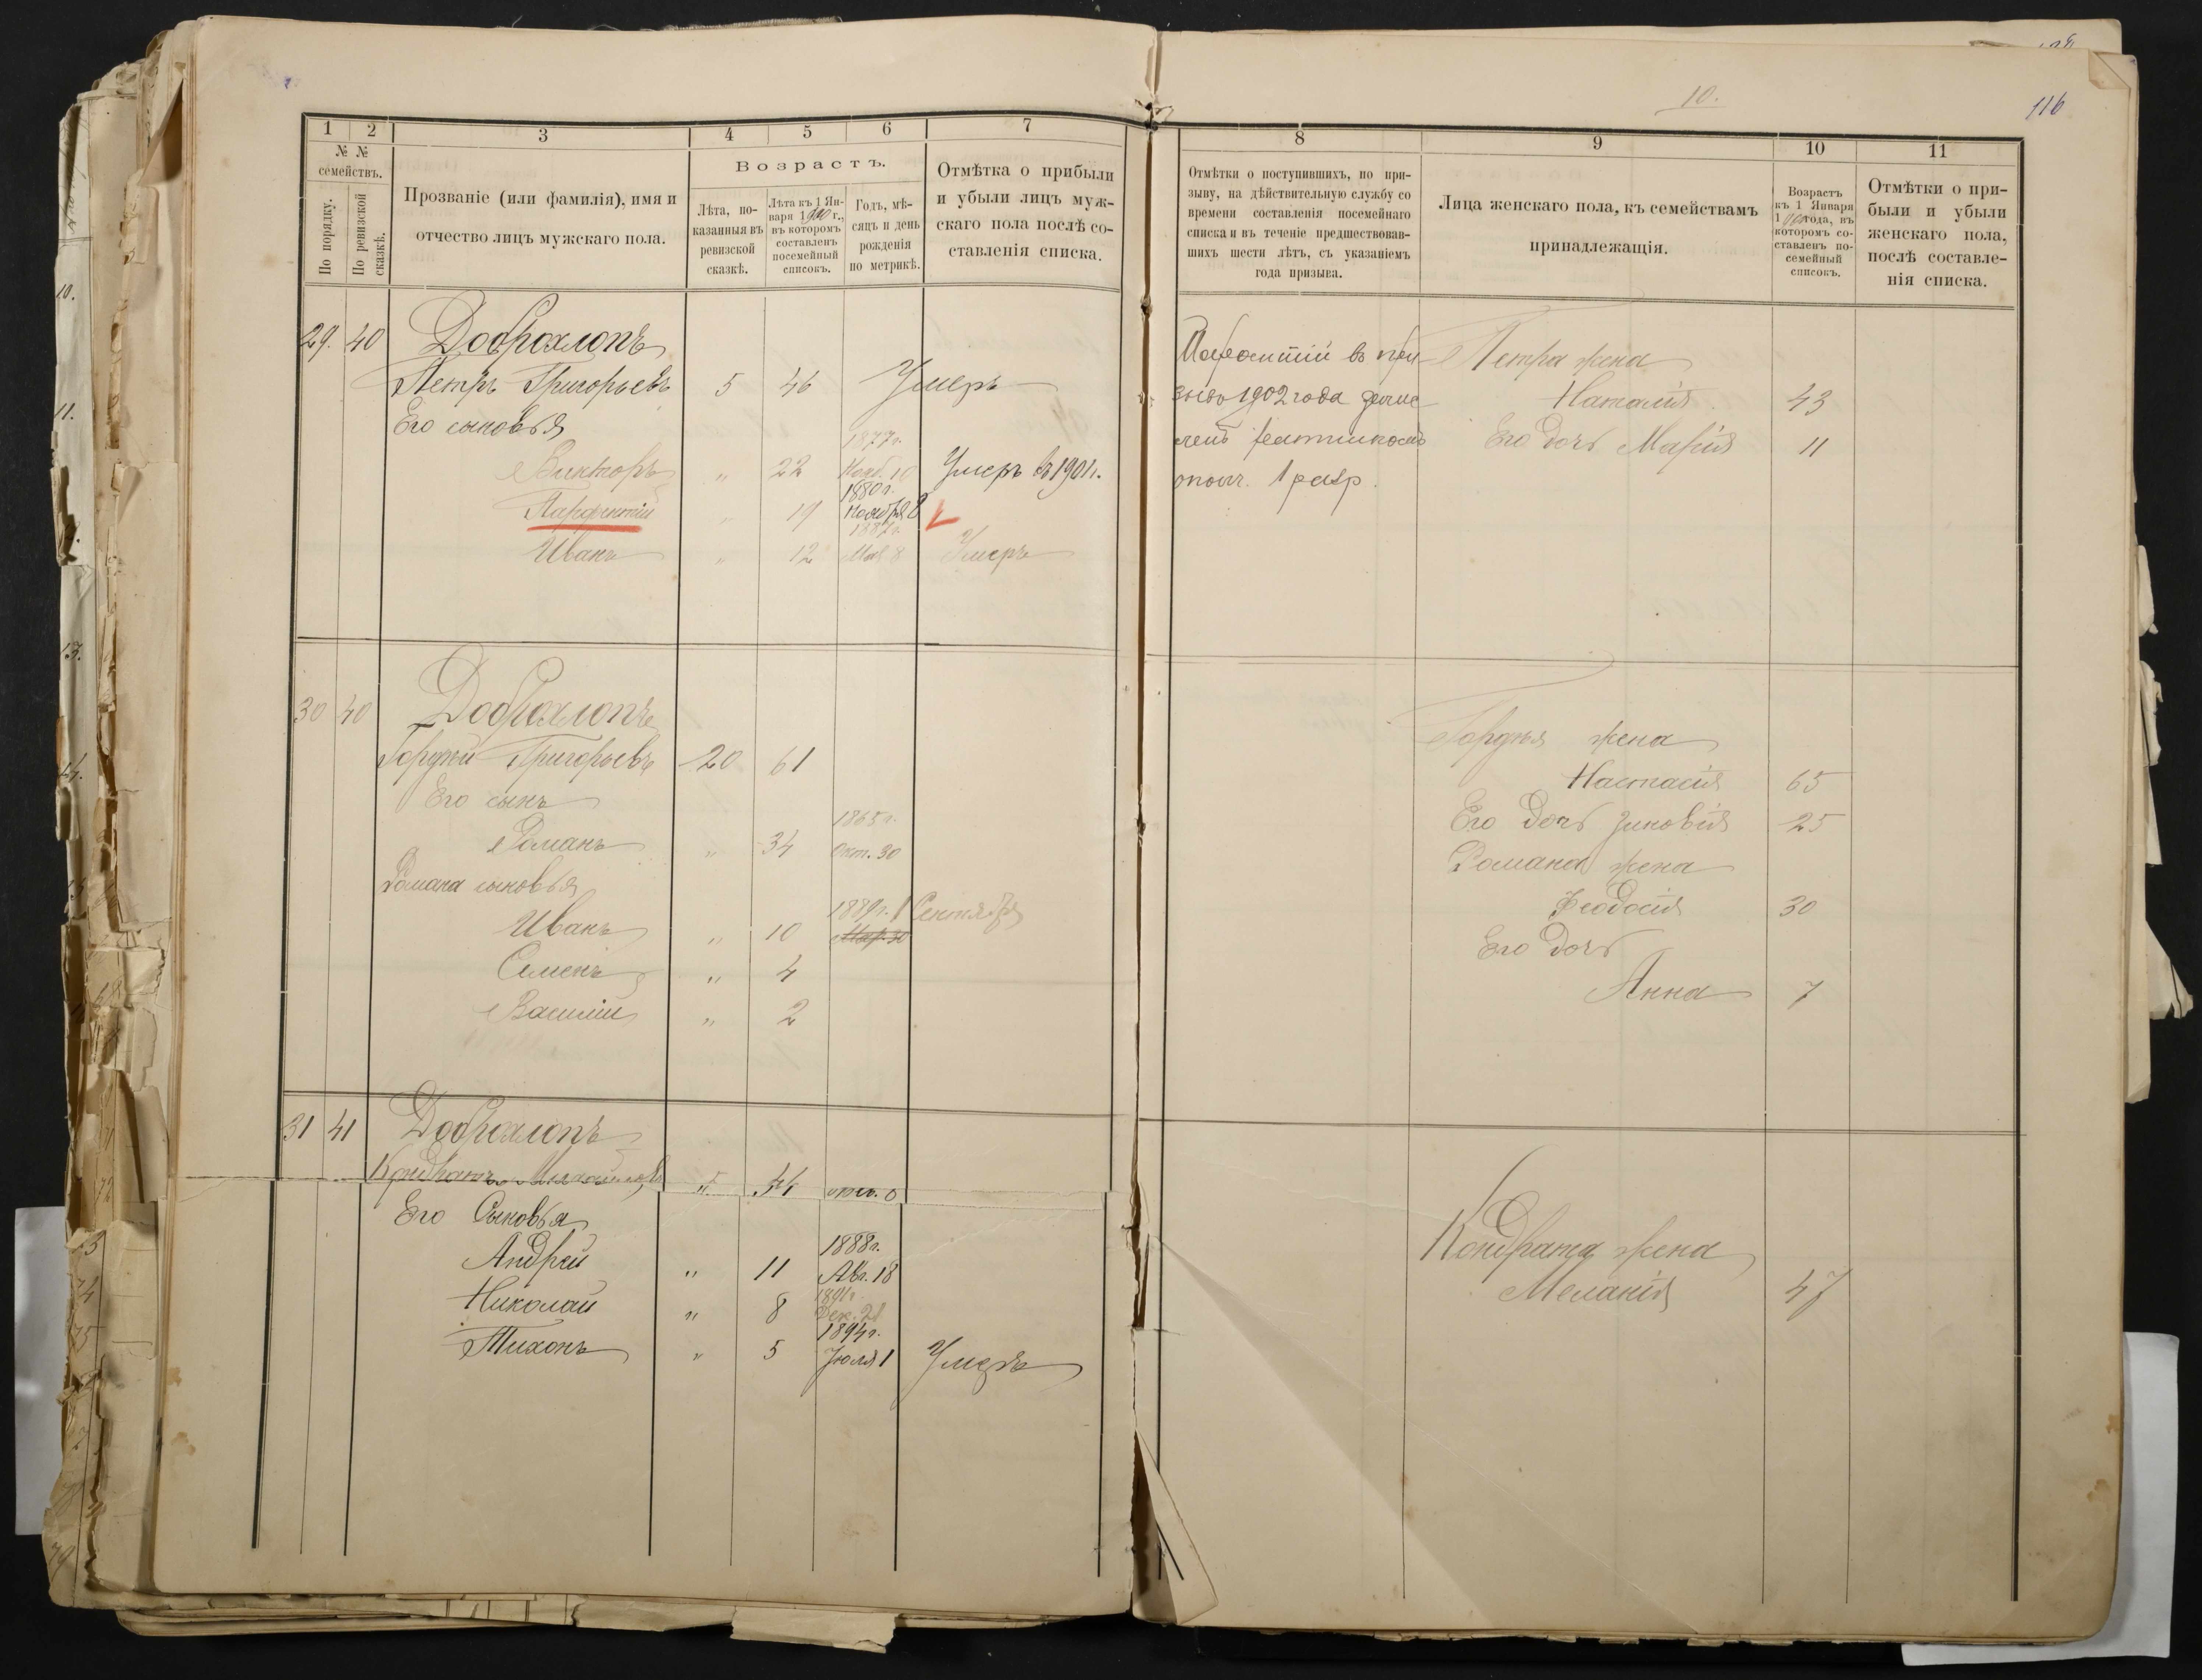 10.
116
1 2 3 4 5 6 7
№ №
семействъ.
По порядку.
По ревизской
сказкѣ.
Прозваніе (или фамилія), имя и
отчество лицъ мужскаго пола.
Возрастъ.
Лѣта, по-
казанныя въ
ревизской
сказкѣ.
Лѣта къ 1 Ян-
варя 1900 г.,
въ которомъ
составленъ
посемейный
списокъ.
Годъ, мѣ-
сяцъ и день
рожденія
по метрикѣ.
Отмѣтка о прибыли
и убыли лицъ муж-
скаго пола послѣ со-
ставленія списка.
29. 40 Доброхлопъ
Петръ Григорьевъ 5 46 Умеръ
Его сыновья
1877г.
Викторъ " 22 Нояб. 10 Умеръ въ 1901г.
1880г.
Парфентій " 19 ноября 8
1887г.
Иванъ " 12 Мая 8 Умеръ
30 40 Доброхлопъ
Гордѣй Григорьевъ 20 61
Его сынъ
1865г.
Романъ " 34 Окт. 30
Романа сыновья
1889г. 1 Сентября
Иванъ " 10 Мар. 30
Семенъ " 4
Василій " 2
31 41 Доброхлопъ
Кондратъ " 44
Его Сыновья
1888г.
Андрей " 11 Авг. 18
1891г.
Николай " 8 Дек. 21
1894г.
Тихонъ " 5 Іюля 1 Умеръ
8 9 10 11
Отмѣтки о поступившихъ, по при-
зыву, на дѣйствительную службу со
времени составленія посемейнаго
списка и въ теченіе предшествовав-
шихъ шести лѣтъ, съ указаніемъ
года призыва.
Лица женскаго пола, къ семействамъ
принадлежащія.
Возрастъ
къ 1 Января
1900 года, въ
которомъ со-
ставленъ по-
семейный
списокъ.
Отмѣтки о при-
были и убыли
женскаго пола,
послѣ составле-
нія списка.
Парфентій въ при-
зывъ 1902 года зачис-
ленъ ратникомъ
ополч. 1 разр.
Петра жена
Наталія 43
Его дочь Марія 11
Гордѣя жена
Настасія 65
Его дочь Зиновія 25
Романа жена
Феодосія 30
Его дочь
Анна 7
Кондрата жена
Меланія 47